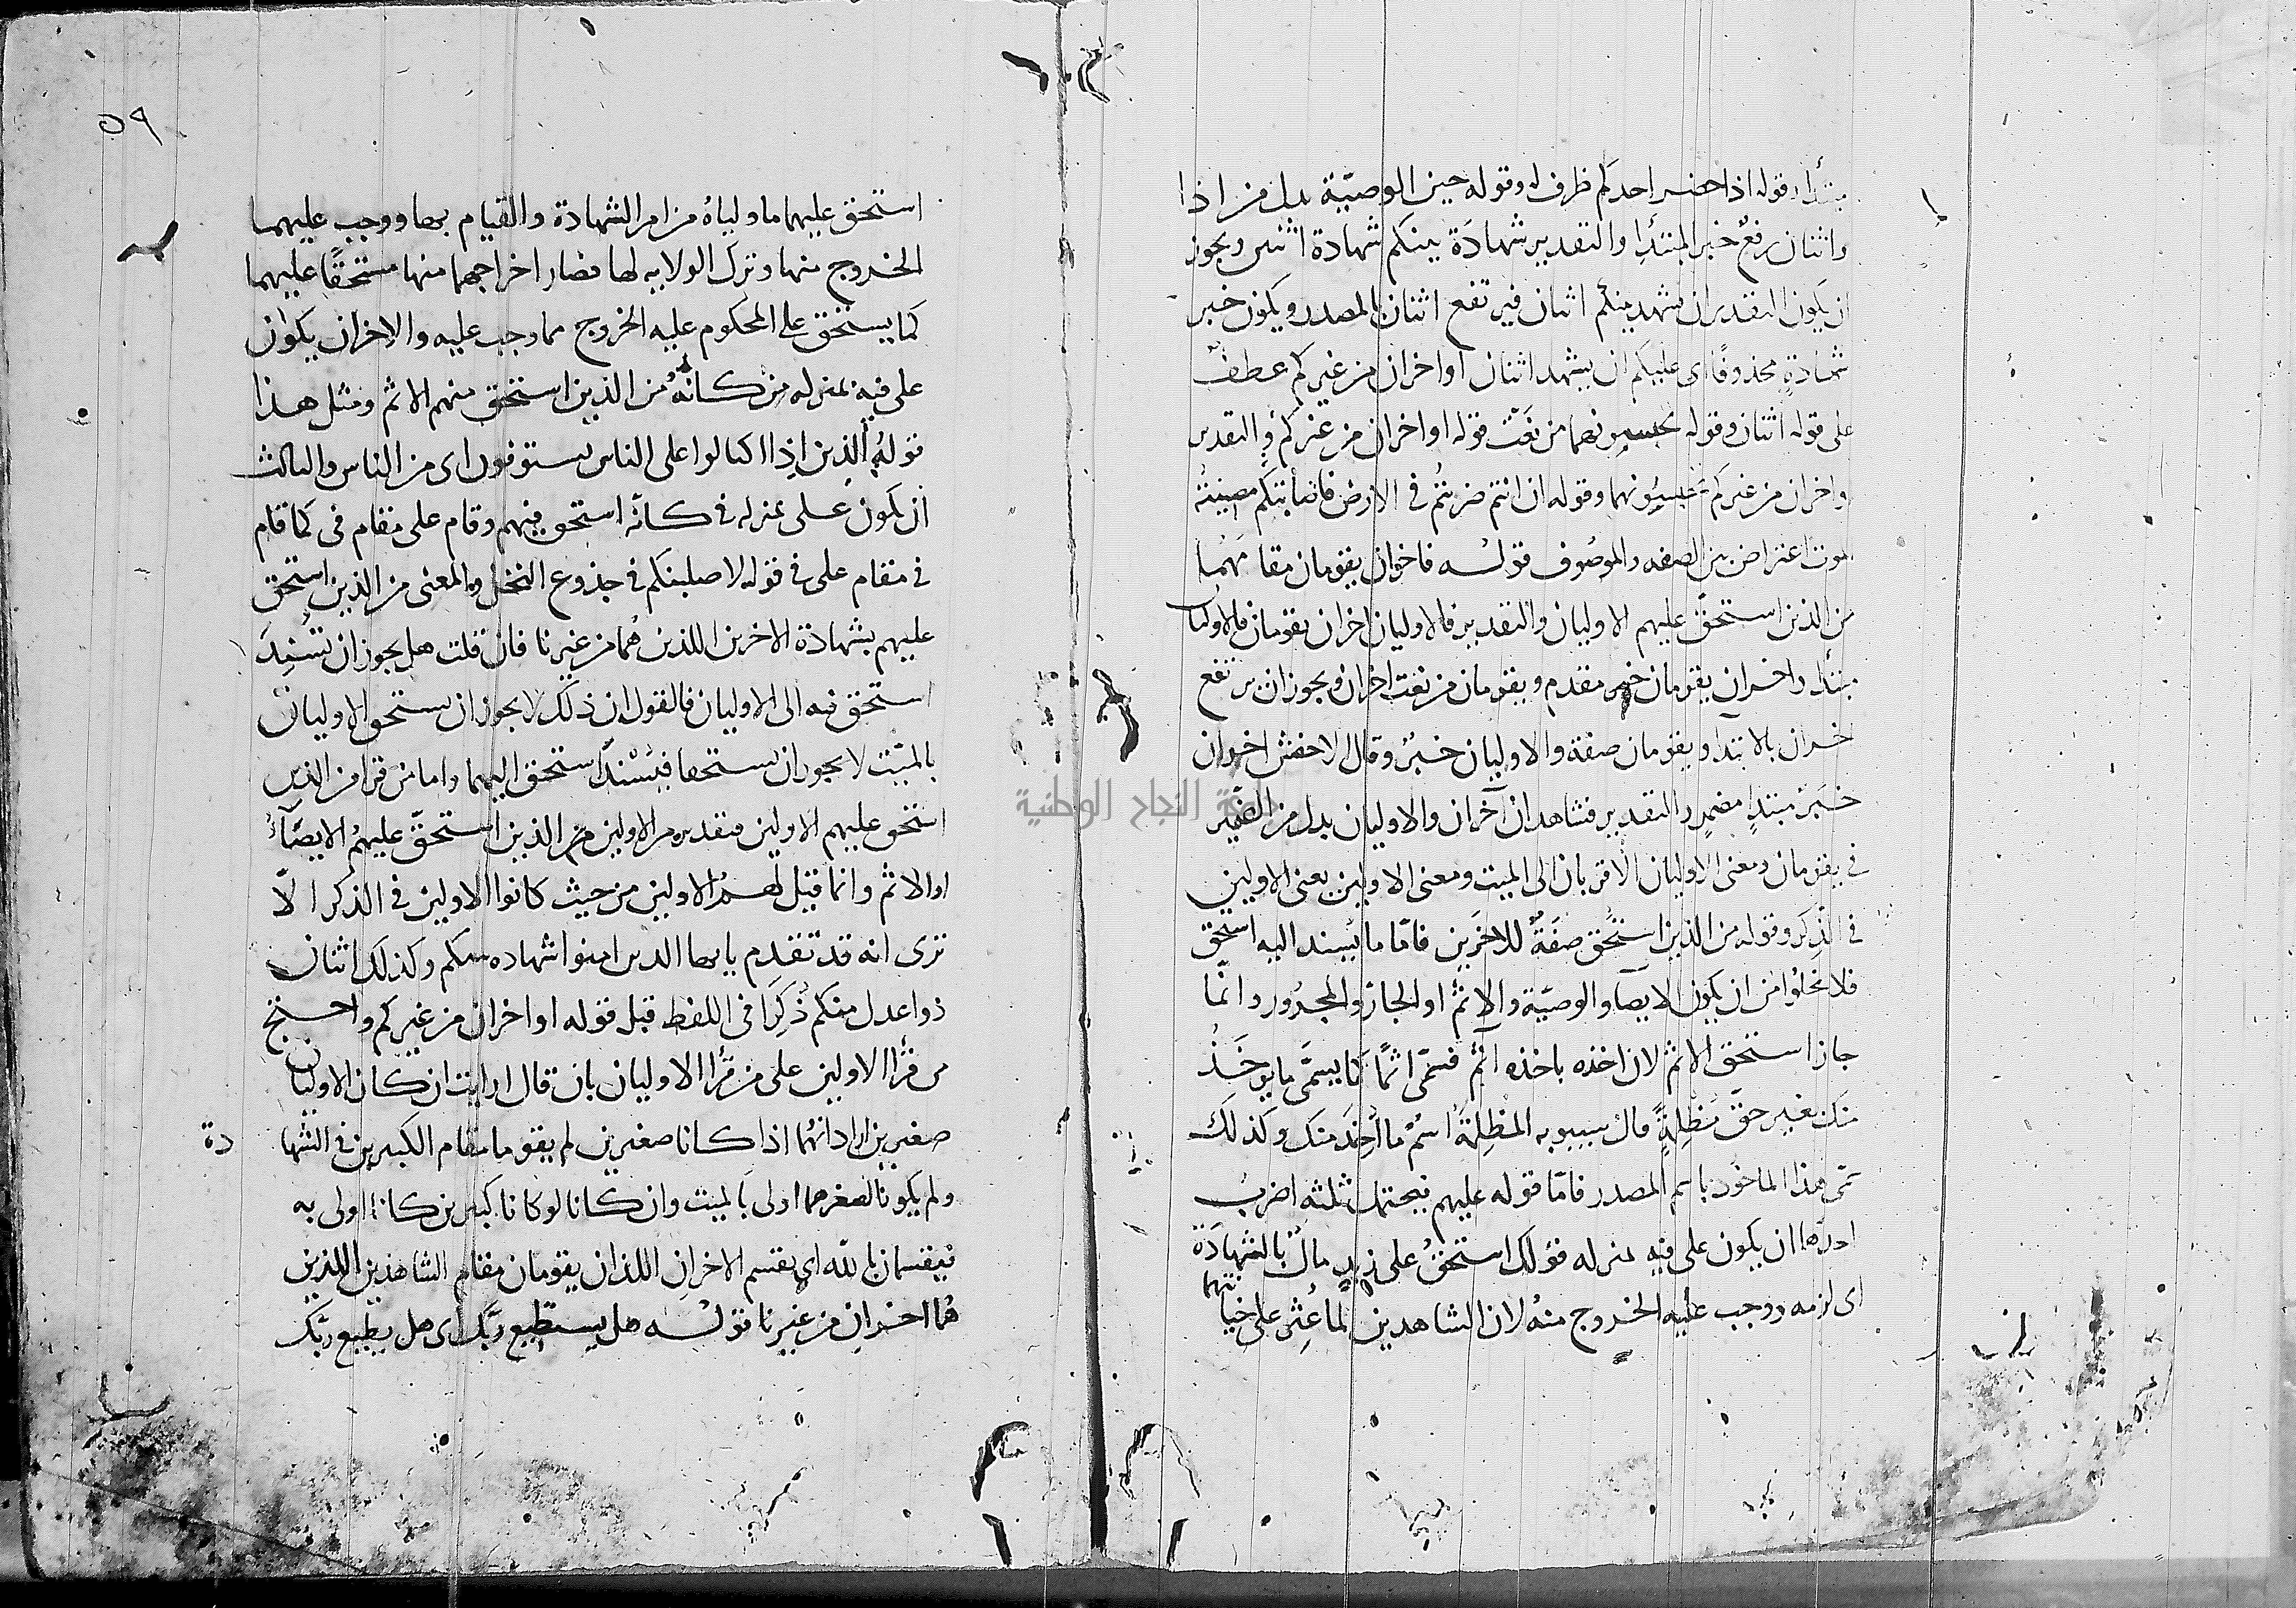 مبتدأ وقوله اذا حضر احدكم ظرف له وقوله حين الوصيّة بدل من اذا
واثنان رفعٌ خبر المبتدإ والتقدير شهادَة بينكم شهادة اثنين ويجوز
ان يكون التقدير ان يشهد بينكم اثنان فيرتفع اثنان بالمصدر ويكون خبر
شهادةٍ محذوفًا اى عليكم ان يشهد اثنان او اخران من غيركم عطفٌ
على قوله اثنان وقوله تحبسونهما من نَعْت قوله او اخران من غيركم والتقدير
واخران من غيركم تحبسونهما وقوله ان انتم ضربتُم فى الارض فاصابتكم مصيبَةُ
الموت اعتراض بين الصفه والموصُوف قولـه فاخران يقومان مقامَهُما
من الذين استحقّ عليهم الاوليان والتقدير فالاوليان اخران يقومان فالاوليان
مبتدأ واخران يقومان خبر مقدم ويقومان من نعت اخران ويجوز ان يرتفع
اخران بالابتدا ويقومان صفة والاوليان خبرٌ وقال الاخفش اخران
خَبَرُ مبتدإٍ مضمرٍ والتقدير فشاهدان آخران والاوليان بدل من الضمير
فى يقومان ومعنى الاوليان الاقربان الى الميت ومعنى الاولين يعنى الاولين
فى الذِكر وقوله من الذين استُحق صفَةٌ للاخرَين فامّا ما يُسند اليه استحق
فلا يخلوا من ان يكون الايصآ والوصيّة والاثمُ او الجارّ والمجرُور وانّما
جاز استحق الاثم لان اخذه باخذه آثم فسمّى اثمًا كما يسمَّى ما يوخَذُ
منك بغير حقّ مَظْلِمَةً قال سيبويه المَظْلِمَةُ اسْمُ ما أُخِذَ منك وكذلك
سمّى هذا الماخوذ باسم المصدر فامّا قوله عليهم فيحتمل ثلثه اضربٍ
احدها ان يكون على فيه بمنزله قولك استحقّ على زيدٍ مالٌ بالشهادَة
اى لزمه ووجب عليه الخروج منهُ لان الشاهدين لما عُثِر على خيانتهما
٥٩
استحق عليهما ما ولياهُ من امر الشهادة والقيام بها ووجب عليهما
الخروج منها وترك الولايه لها فصار اخراجهما منها مستحقًا عليهما
كما يستحق على المحكوم عليه الخروج مما وجب عليه والاخران يكون
على فيه بمنزله مِن كانّهُ من الذين استحق منهم الاثم ومثل هذا
قولهُ الذين اذا اكتالوا على الناس يستوفون اى من الناس والثالث
ان يكون عـلى بمنزله فى كانّه استحق فيهم وقام على مقام فى كما قام
فى مقام على فى قوله لاصلبنكم فى جذوع النخل والمعنى من الذين استحق
عليهم بشهادة الاخرين اللذين هُما من غيرنا فان قلت هل يجوز ان تُسْنِدَ
استحق فيه الى الاوليان فالقول ان ذلك لا يجوز ان يستحق الاوليان
بالميّت لا يجوز ان يستحقا فيُسْندَ استحق اليهما واما من قرا من الذين
استحق عليهم الاولين فتقديره من الاولين من الذين استحقّ عليهمُ الايصآءُ
او الاثم وانما قيل لهم الاولين من حيث كانوا الاولين فى الذكر الّا
ترى انه قد تقدم يا يها الذين امنوا شهاده بينكم وكذلك اثنان
ذوا عدل منكم ذُكِرَا فى اللفظ قبل قوله او اخران من غيركم واحتج
من قرأ الاولين على من قرأ الاوليان بان قال ارايت ان كان الاوليان
صغيرين اراد انهُما اذا كانا صغيرين لم يقوما مقام الكبيرين فى الشهادة
ولم يكونا لصغرهما اولى بالميت وان كانا لو كانا كبيرين كانا اولى به
فيقسمان بالله اى يقسم الاخرانِ اللذان يقومان مقام الشاهدين اللذين
هُما اخرانِ من غيرنا قولـه هل يستطيع ربّك اى هل يطيع ربّك
جامعة النجاح الوطنية